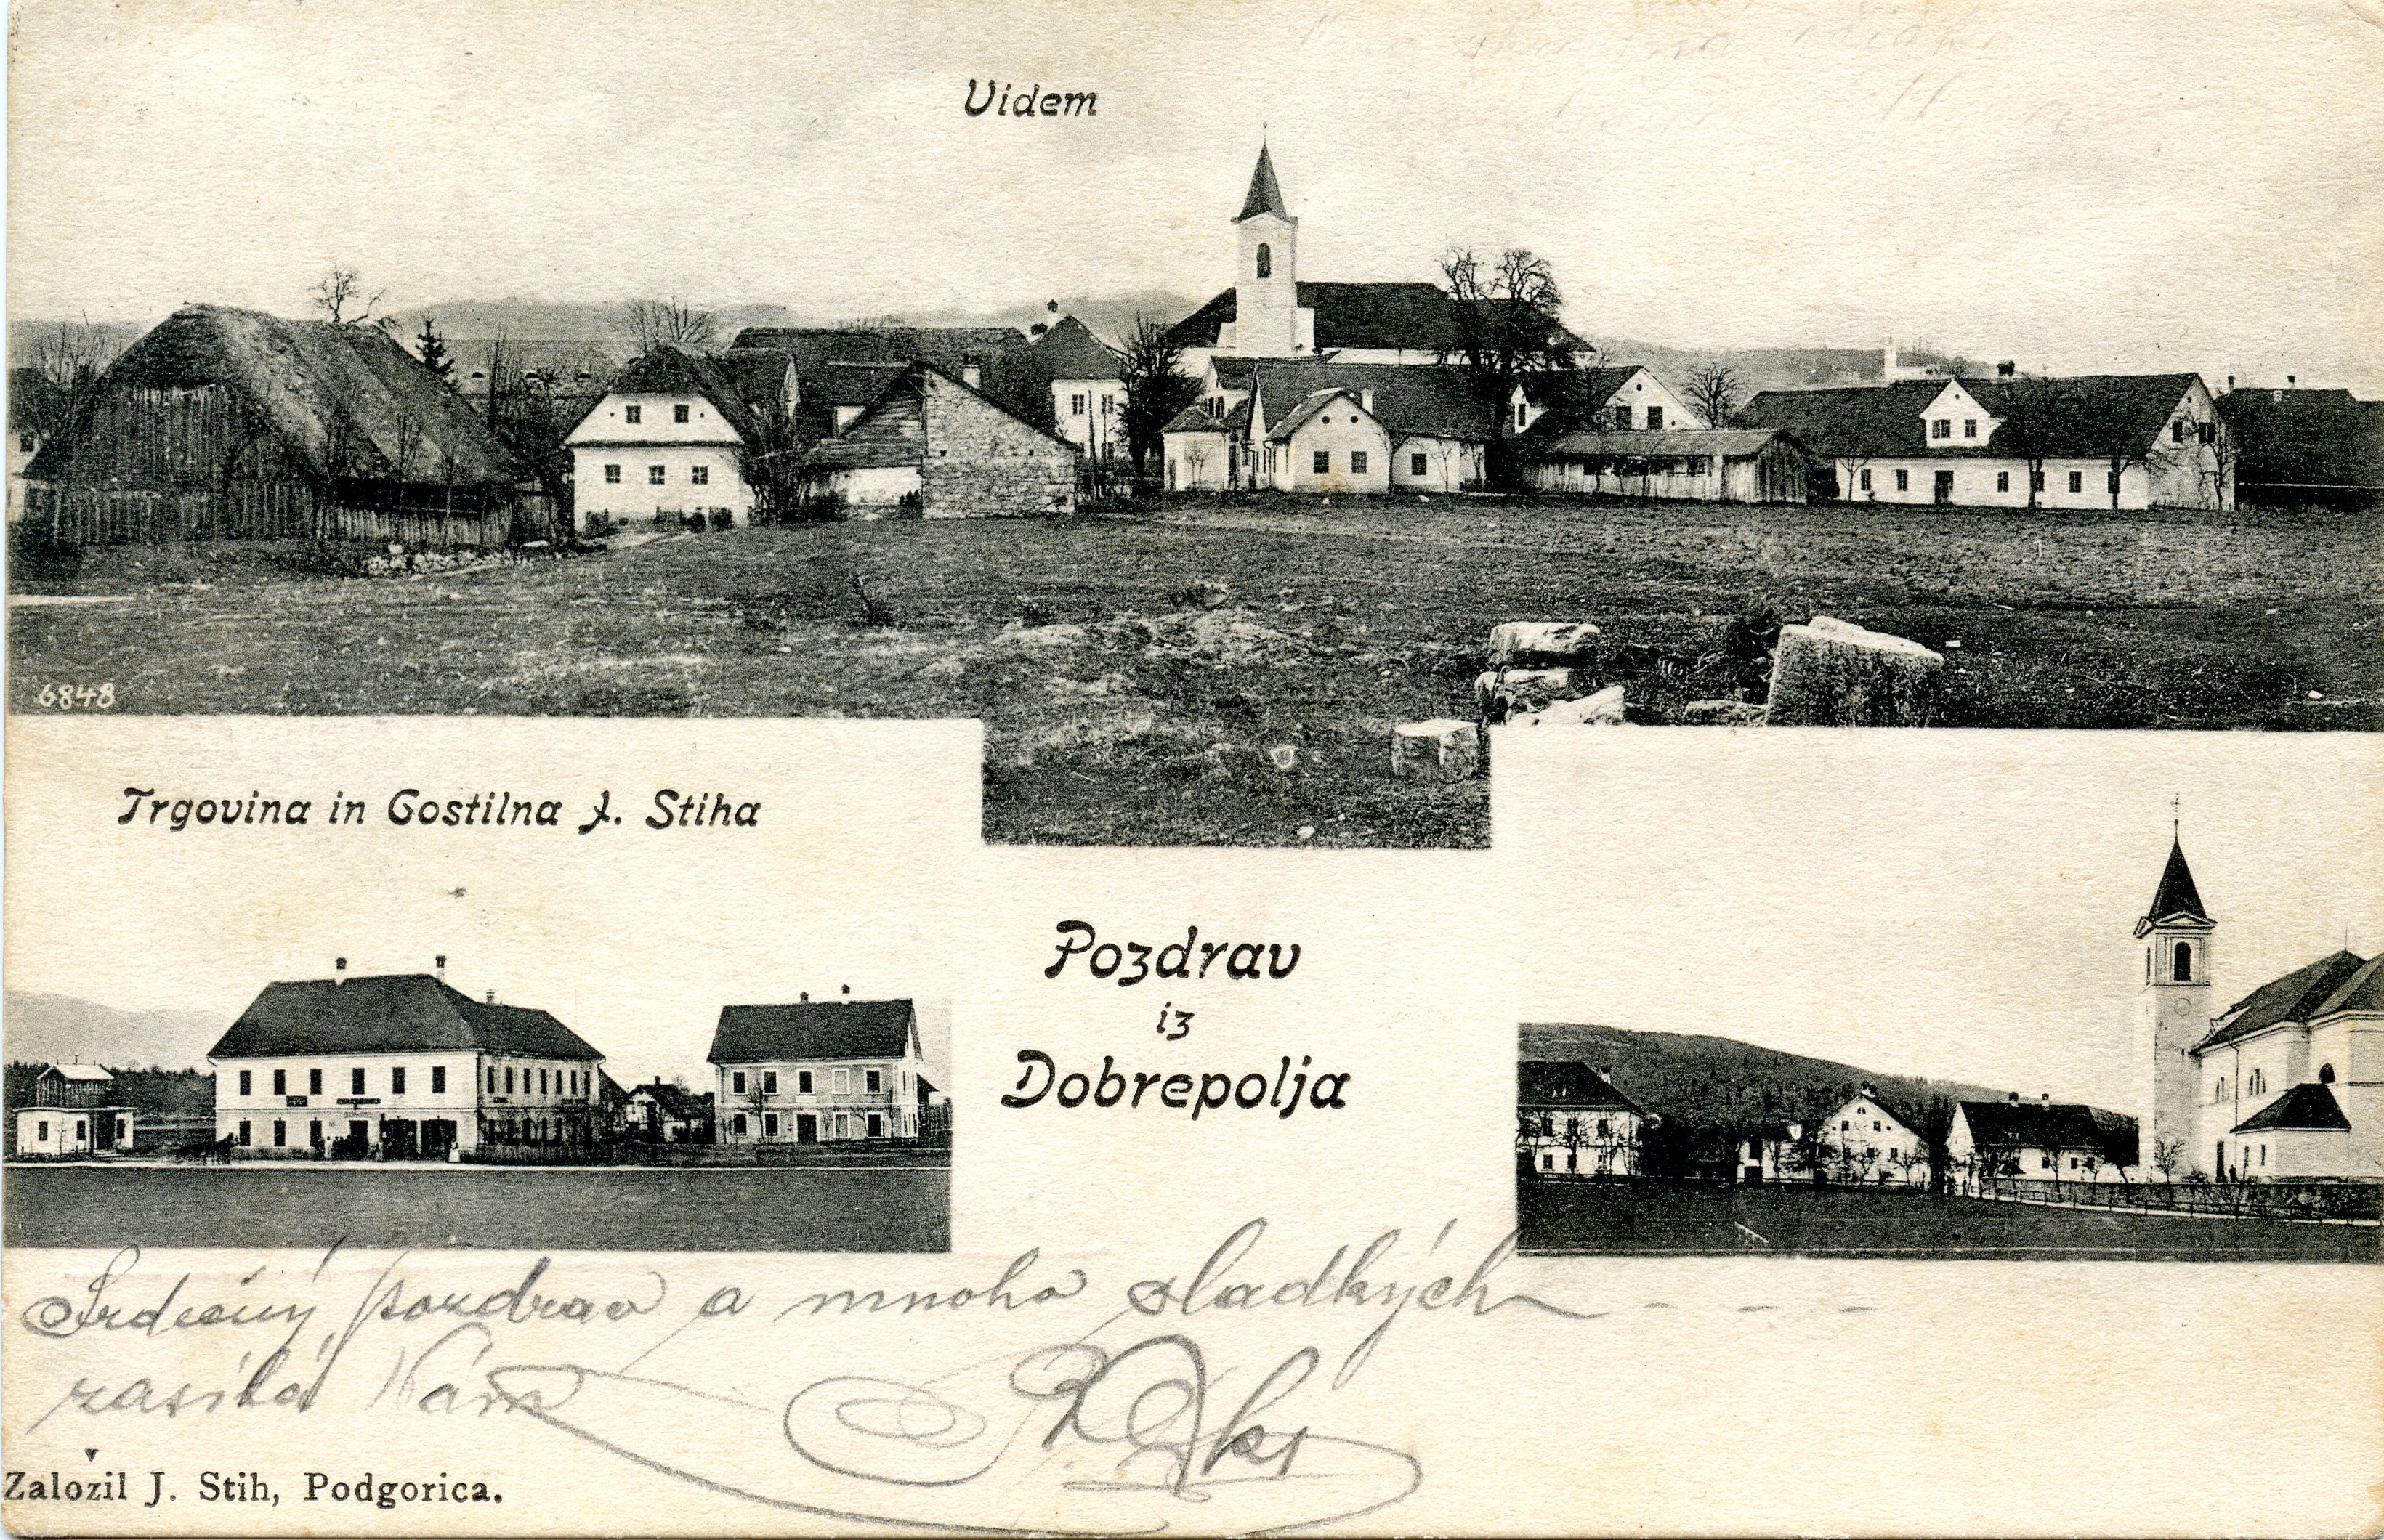 Videm
6848
Trgovina in Gostilna J. Stiha
Pozdrav
iz
Dobrepolja
Srdečný pozdrav a mnoho sladkých - - - -
zasílá Vám
Založil J. Stih, Podgorica.